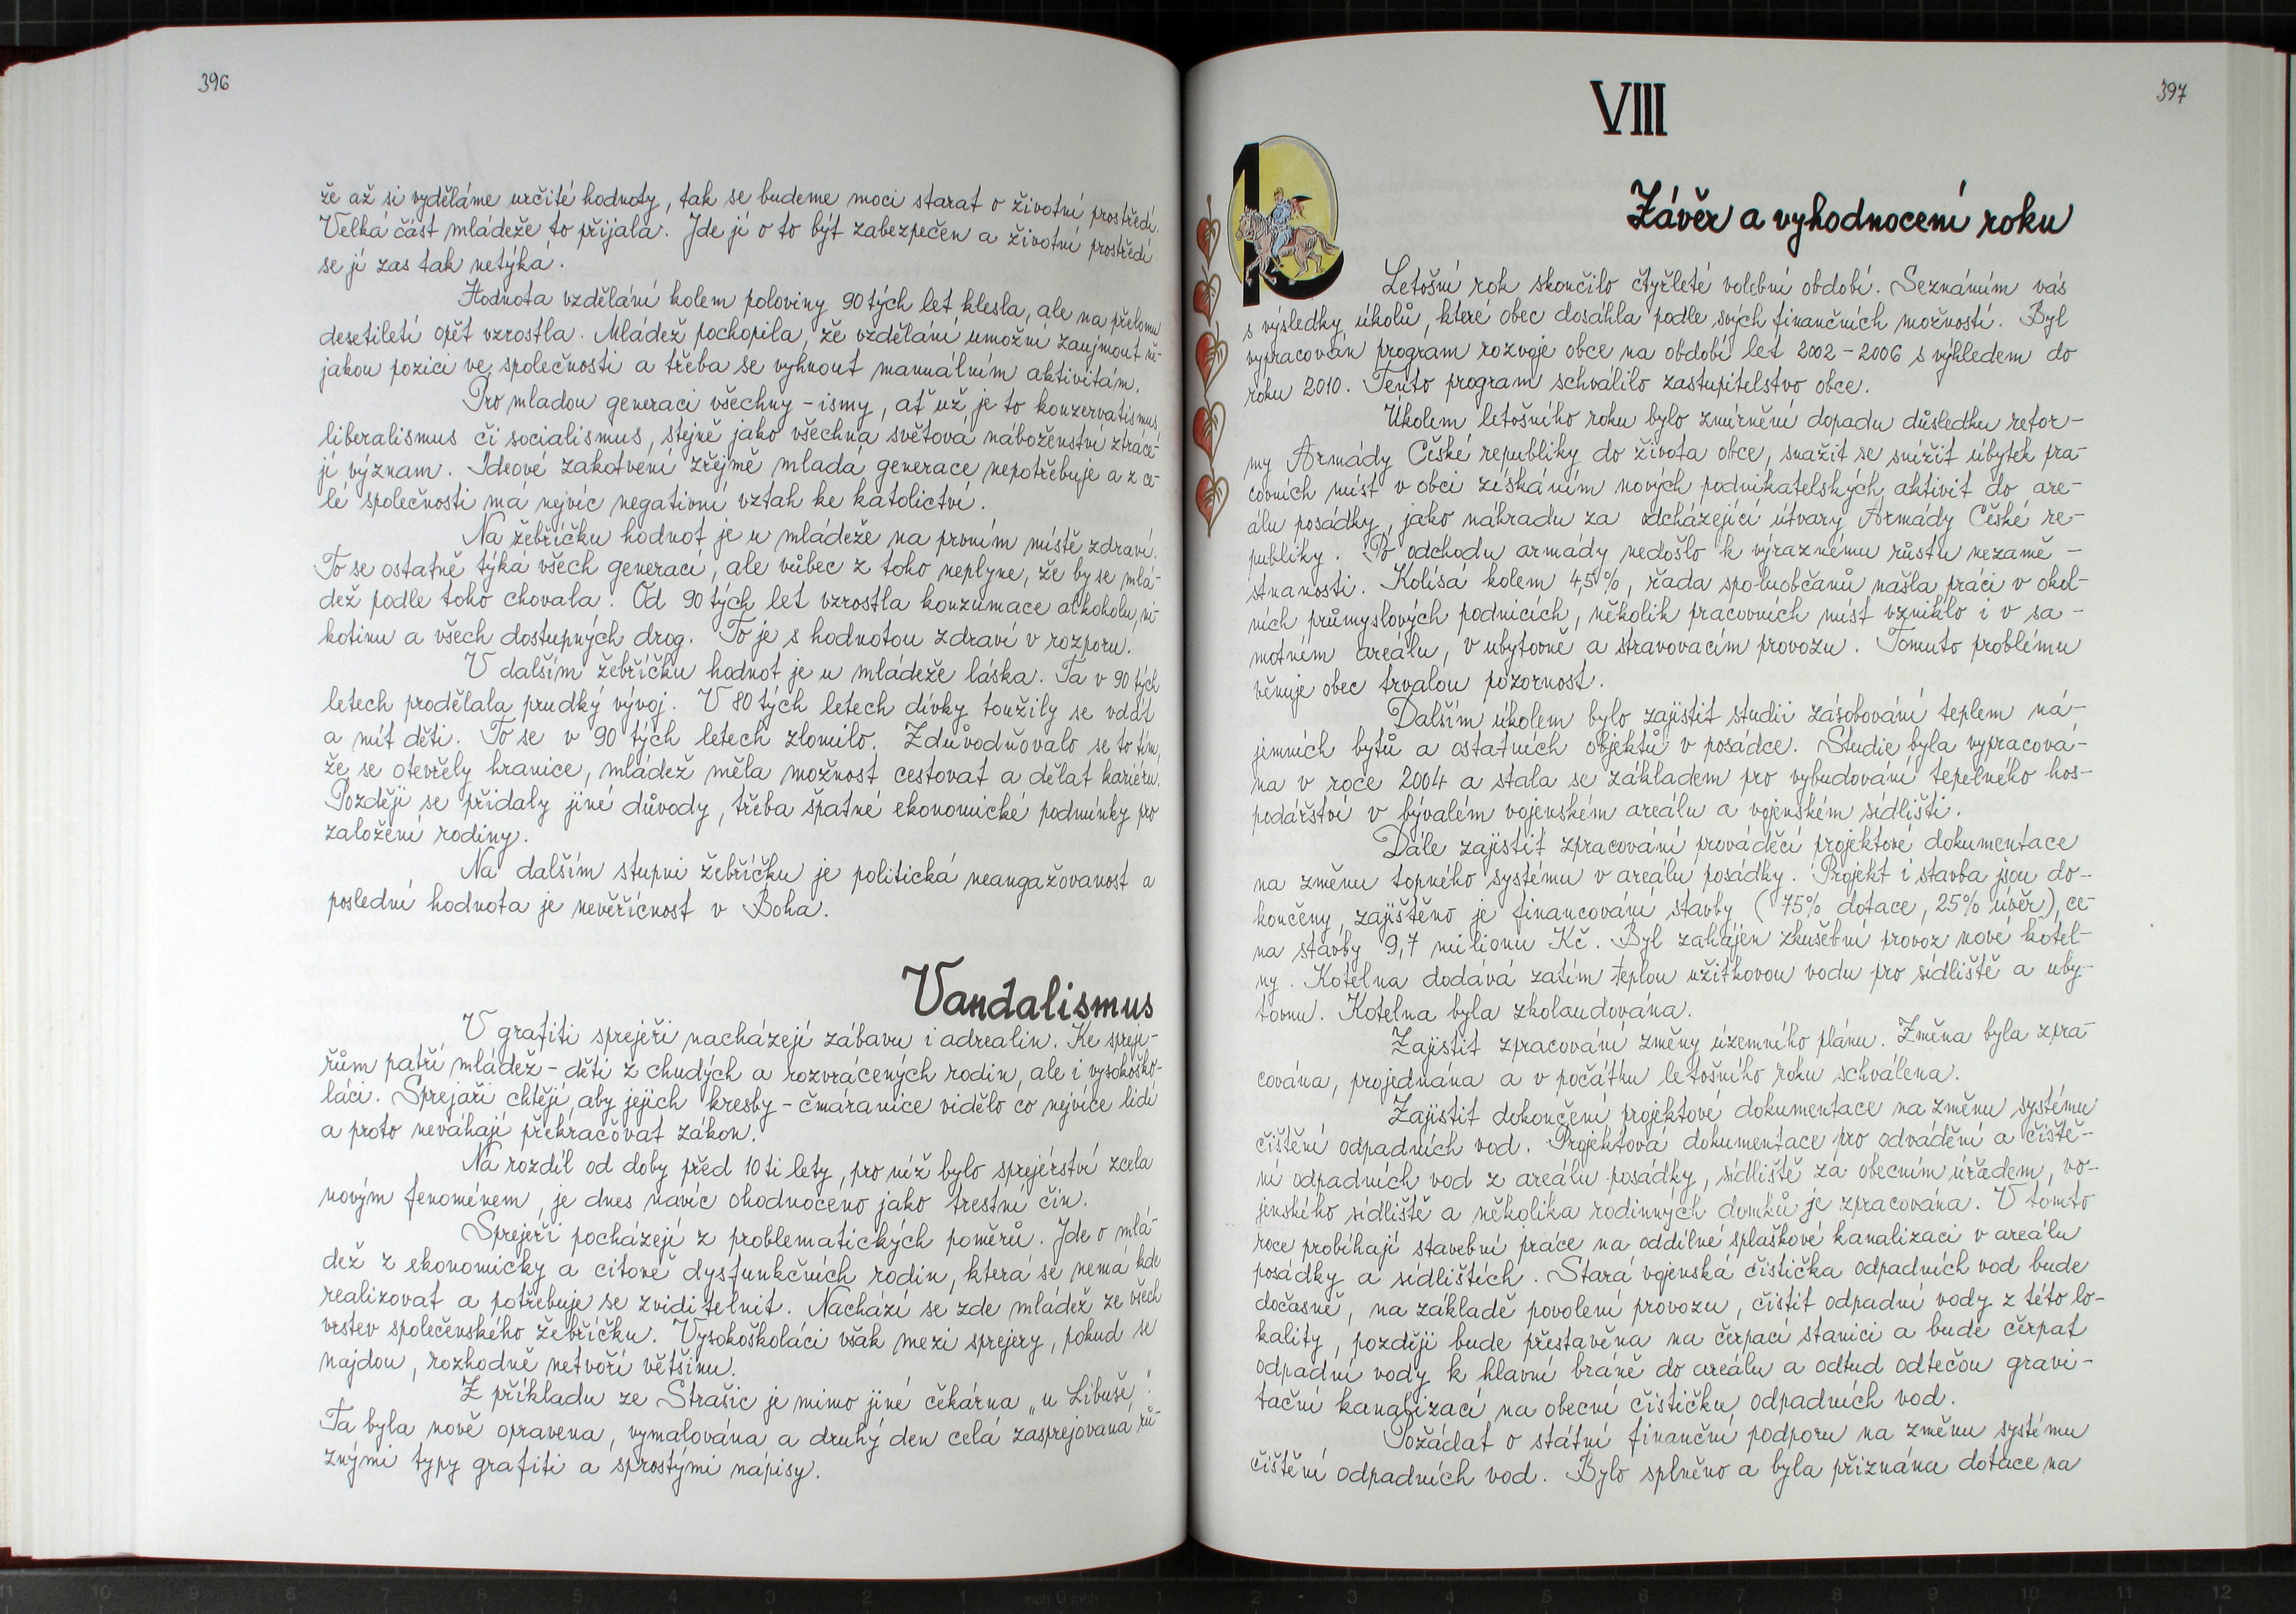 396
že až si vyděláme určité hodnoty, tak se budeme moci starat o životní prostředí.
Velká část mládeže to přijala. Jde jí o to být zabezpečen a životní prostředí
se jí zas tak netýká.
Hodnota vzdělání kolem poloviny 90tých let klesla, ale na přelomu
desetiletí opět vzrostla. Mládež pochopila, že vzdělání umožní zaujmout ně-
jakou pozici ve společnosti a třeba se vyhnout manuálním aktivitám.
Pro mladou generaci všechny -ismy, ať už je to konzervatismus,
liberalismus či socialismus, stejně jako všechna světová náboženství ztráce-
jí význam. Ideové zakotvení zřejmě mladá generace nepotřebuje a z ce-
lé společnosti má nejvíc negativní vztah ke katolictví.
Na žebříčku hodnot je u mládeže na prvním místě zdraví.
To se ostatně týká všech generací, ale vůbec z toho neplyne, že by se mlá-
dež podle toho chovala. Od 90tých let vzrostla konzumace alkoholu, ni-
kotinu a všech dostupných drog. To je s hodnotou zdraví v rozporu.
V dalším žebříčku hodnot je u mládeže láska. Ta v 90tých
letech prodělala prudký vývoj. V 80tých letech dívky toužily se vdát
a mít děti. To se v 90tých letech zlomilo. Zdůvodňovalo se to tím,
že se otevřely hranice, mládež měla možnost cestovat a dělat kariéru.
Později se přidaly jiné důvody, třeba špatné ekonomické podmínky pro
založení rodiny.
Na dalším stupni žebříčku je politická neangažovanost a
poslední hodnota je nevěřícnost v Boha.
Vandalismus
V grafiti sprejeři nacházejí zábavu i adrealin. Ke spreje-
řům patří mládež - děti z chudých a rozvrácených rodin, ale i vysokoško-
láci. Sprejaři chtějí, aby jejich kresby - čmáranice vidělo co nejvíce lidí
a proto neváhají překračovat zákon.
Na rozdíl od doby před 10ti lety, pro níž bylo sprejérství zcela
novým fenoménem, je dnes navíc ohodnoceno jako trestní čin.
Sprejeři pocházejí z problematických poměrů. Jde o mlá-
dež z ekonomicky a citově dysfunkčních rodin, která se nemá kde
realizovat a potřebuje se zviditelnit. Nachází se zde mládež ze všech
vrstev společenského žebříčku. Vysokoškoláci však mezi sprejery, pokud se
najdou, rozhodně netvoří většinu.
Z příkladu ze Strašic je mimo jiné čekárna „u Libuše".
Ta byla nově opravena, vymalována a druhý den celá zasprejovaná rů-
znými typy grafiti a sprostými nápisy.
397
VIII
Závěr a vyhodnocení roku
Letošní rok skončilo čtyřleté volební období. Seznámím vás
s výsledky úkolů, které obec dosáhla podle svých finančních možností. Byl
vypracován program rozvoje obce na období let 2002 - 2006 s výhledem do
roku 2010. Tento program schválilo zastupitelstvo obce.
Úkolem letošního roku bylo zmírnění dopadu důsledku refor-
my Armády České republiky do života obce, snažit se snížit úbytek pra-
covních míst v obci získáním nových podnikatelských aktivit do are-
álu posádky, jako náhradu za odcházející útvary Armády České re-
publiky. Po odchodu armády nedošlo k výraznému růstu nezamě-
stnanosti. Kolísá kolem 4,5%, řada spoluobčanů našla práci v okol-
ních průmyslových podnicích, několik pracovních míst vzniklo i v sa-
motném areálu, v ubytovně a stravovacím provozu. Tomuto problému
věnuje obec trvalou pozornost.
Dalším úkolem bylo zajistit studii zásobování teplem ná-
jemních bytů a ostatních objektů v posádce. Studie byla vypracová-
na v roce 2004 a stala se základem pro vybudování tepelného hos-
podářství v bývalém vojenském areálu a vojenském sídlišti.
Dále zajistit zpracování prováděcí projektové dokumentace
na změnu topného systému v areálu posádky. Projekt i stavba jsou do-
končeny, zajištěno je financování stavby (75% dotace, 25% úvěr), ce-
na stavby 9,7 milionu Kč. Byl zahájen zkušební provoz nové kotel-
ny. Kotelna dodává zatím teplou užitkovou vodu pro sídliště a uby-
tovnu. Kotelna byla zkolaudována.
Zajistit zpracování změny územního plánu. Změna byla zpra-
cována, projednána a v počátku letošního roku schválena.
Zajistit dokončení projektové dokumentace na změnu systému
čištění odpadních vod. Projektová dokumentace pro odvádění a čiště-
ní odpadních vod z areálu posádky, sídliště za obecním úřadem, vo-
jenského sídliště a několika rodinných domků je zpracována. V tomto
roce probíhají stavební práce na oddílné splaškové kanalizaci v areálu
posádky a sídlištích. Stará vojenská čistička odpadních vod bude
dočasně, na základě povolení provozu, čistit odpadní vody z této lo-
kality, později bude přestavěna na čerpací stanici a bude čerpat
odpadní vody k hlavní bráně do areálu a odtud odtečou gravi-
tační kanalizací na obecní čističku odpadních vod.
Požádat o státní finanční podporu na změnu systému
čištění odpadních vod. Bylo splněno a byla přiznána dotace na